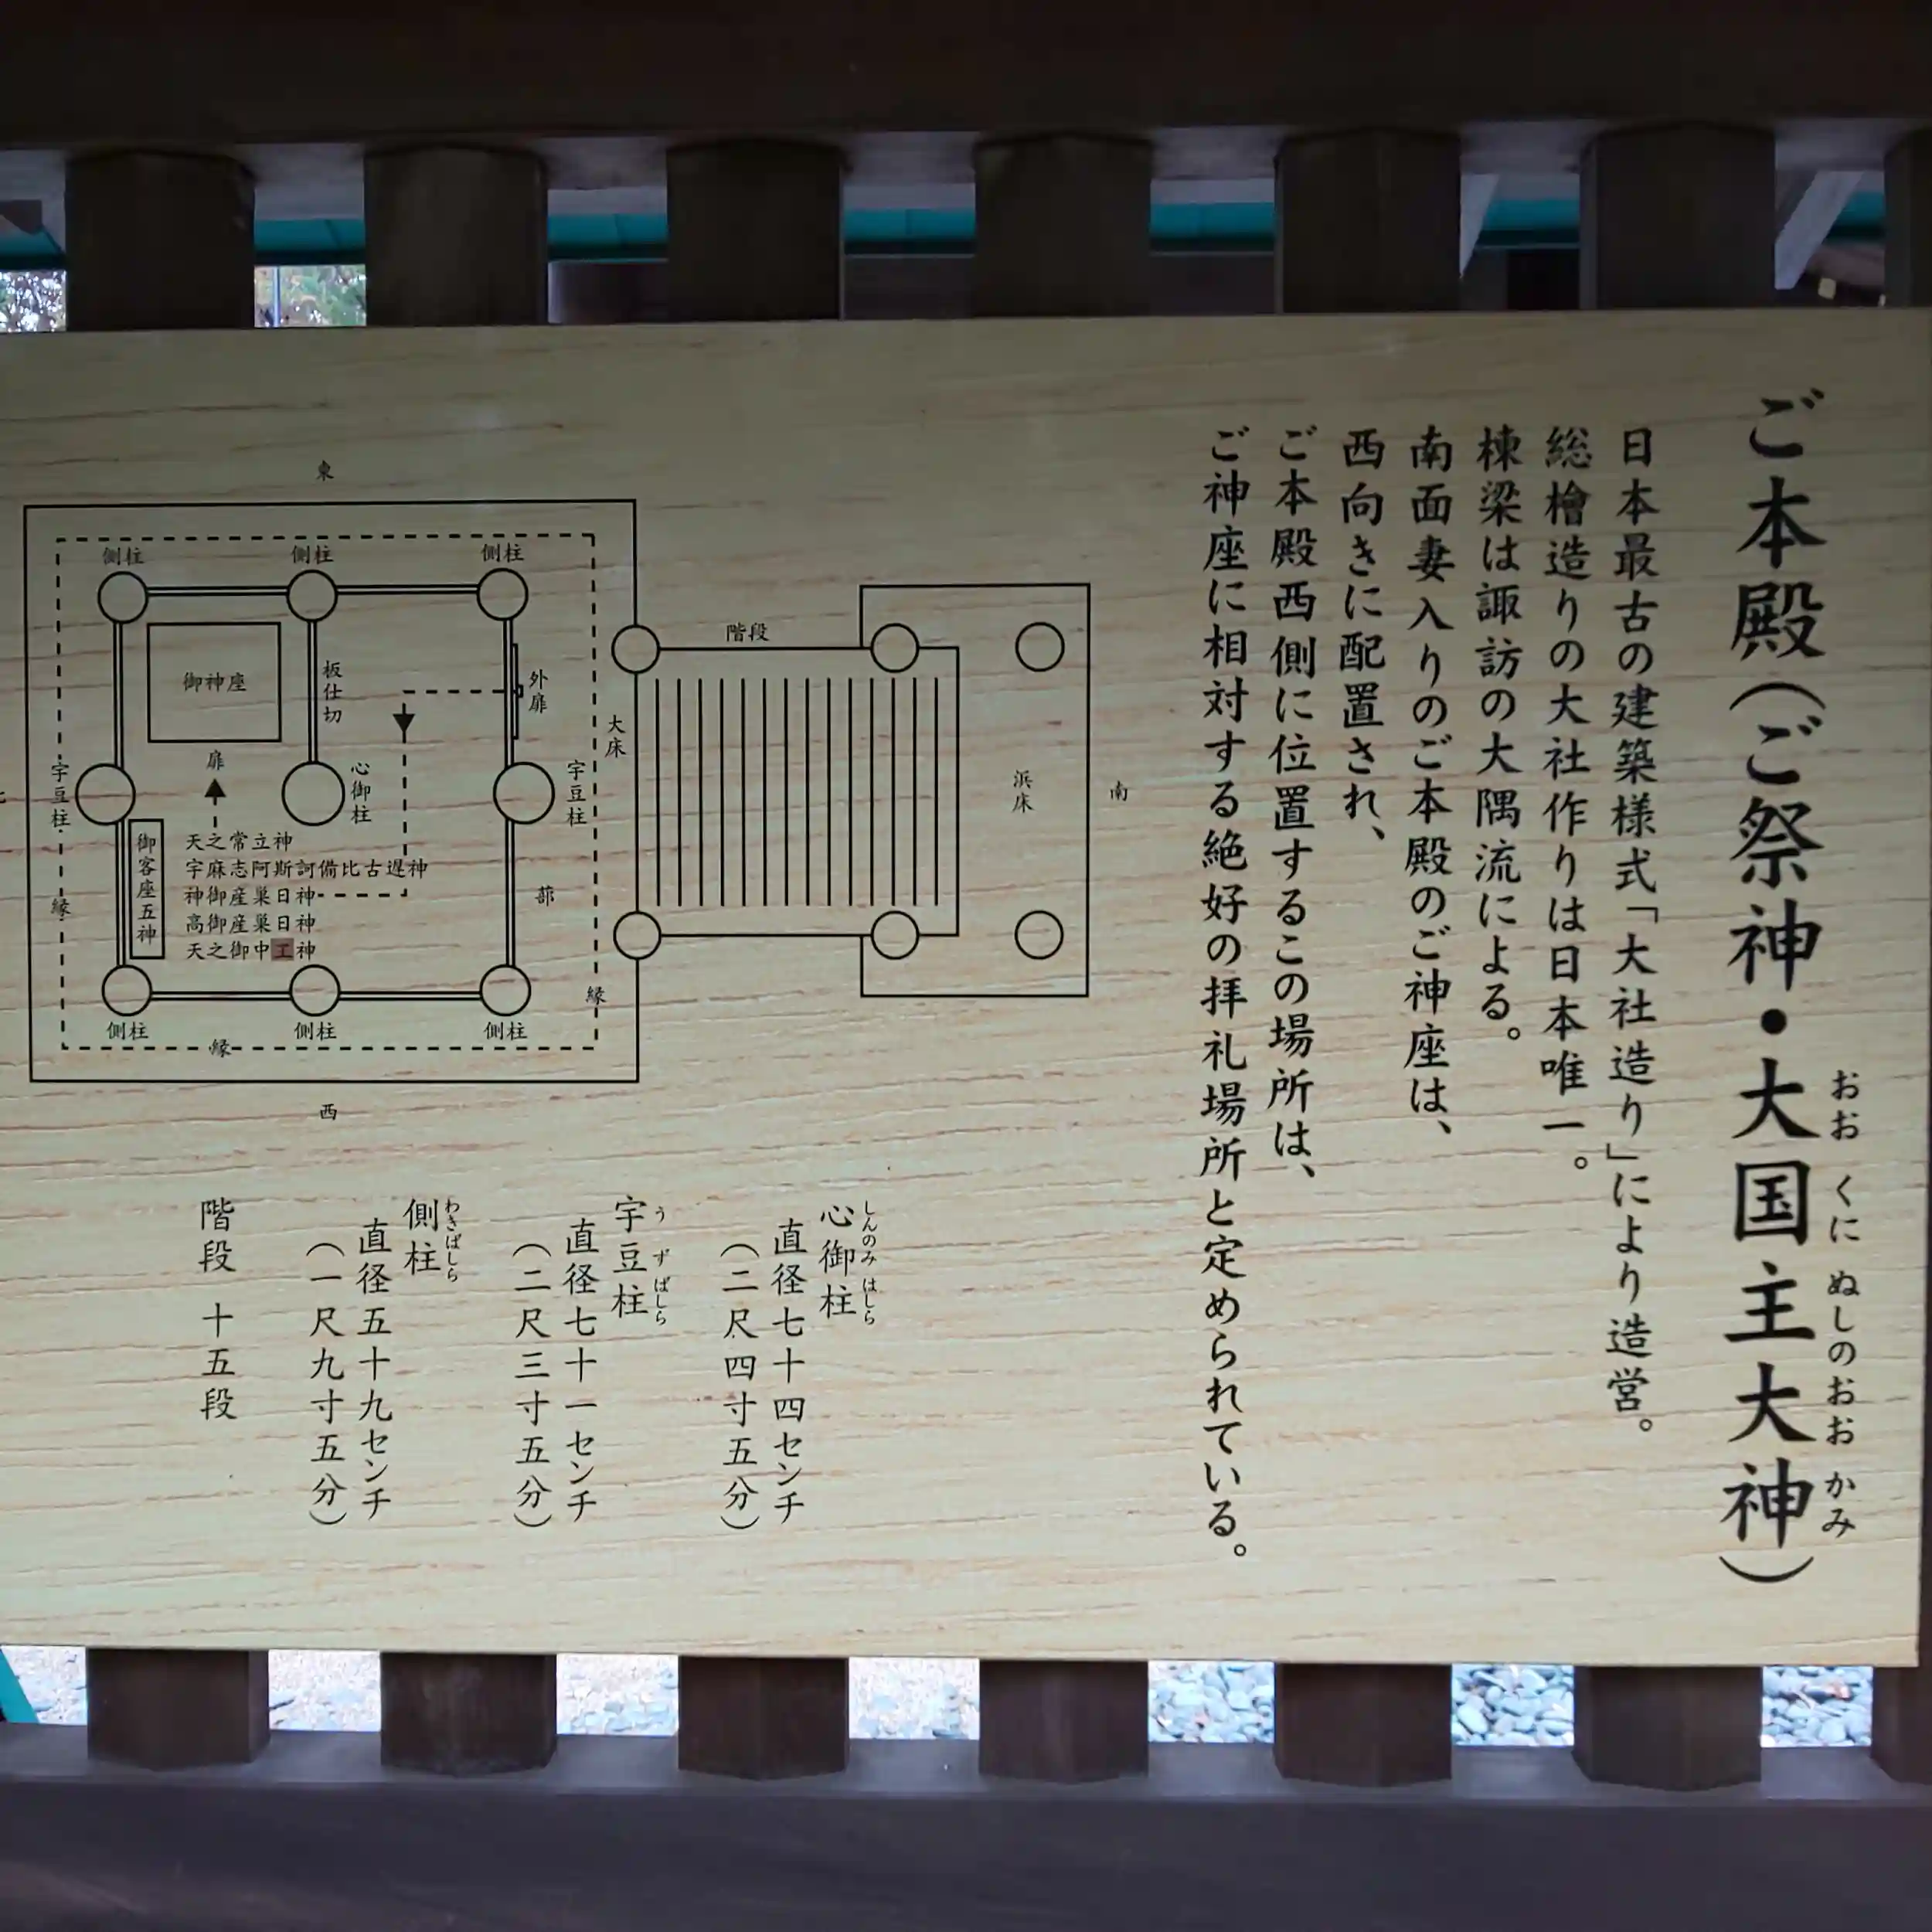 ご本殿(ご祭神・大国主大神)
おお くに ぬしのおお かみ
日本最古の建築様式「大社造り」により造営。
総檜造りの大社作りは日本唯一。
棟梁は諏訪の大隅流による。
南面妻入りのご本殿のご神座は、
西向きに配置され、
ご本殿西側に位置するこの場所は、
ご神座に相対する絶好の拝礼場所と定められている。
東
側柱
側柱
側柱
御神座
板仕切
外扉
扉
宇豆柱
心御柱
宇豆柱
大床
階段
浜床
南
御客座五神
天之常立神
宇麻志阿斯訶備比古遅神
神御産巣日神
高御産巣日神
天之御中工神
蔀
縁
縁
側柱
側柱
側柱
縁
西
心御柱
しんのみ はしら
直径七十四センチ
(二尺四寸五分)
宇豆柱
う ず ばしら
直径七十一センチ
(二尺三寸五分)
側柱
わきばしら
直径五十九センチ
(一尺九寸五分)
階段 十五段